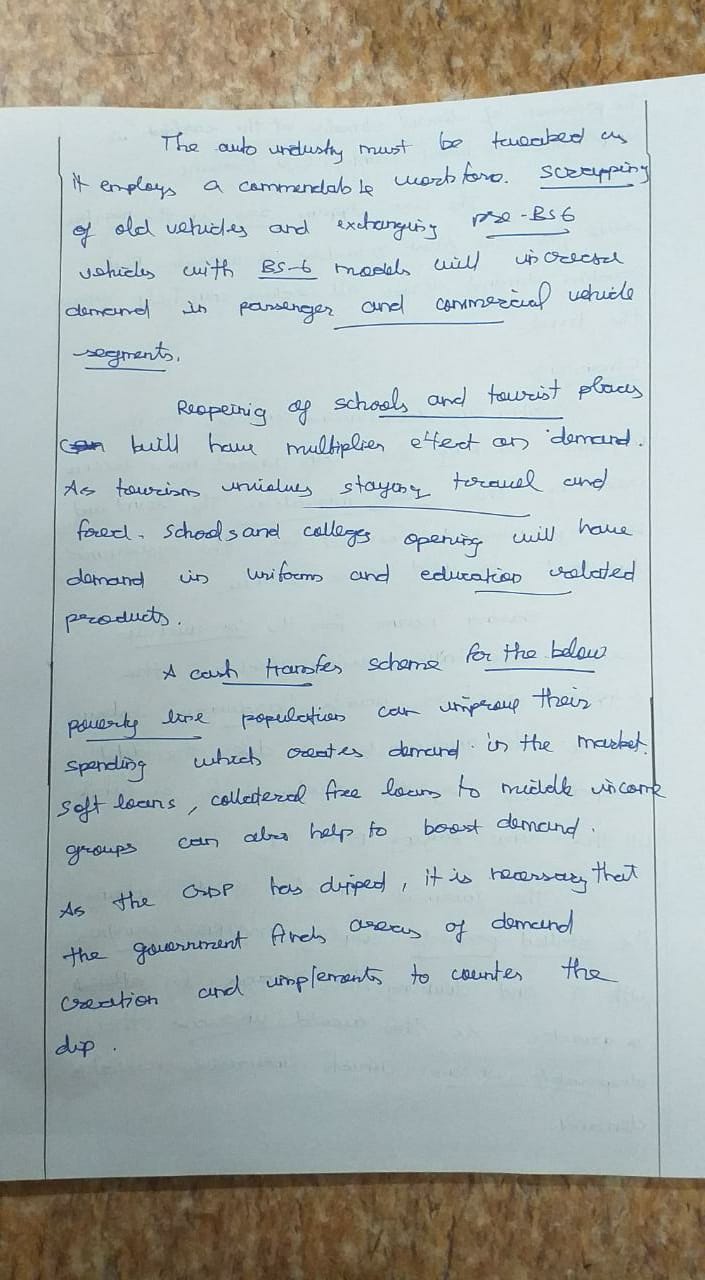 The auto industry must be tweaked as
it employs a commendable workforce. Scrapping
of old vehicles and exchanging pre-BS6
vehicles with BS-6 models will increase
demand in passenger and commercial vehicle
segments.
Reopeinig of schools and tourist places
will have multiplier effect on demand.
As tourism involves staying travel and
food. Schools and colleges opening will have
demand in uniforms and education related
products.
A cash transfer scheme for the below
poverty line population can improve their
spending which creates demand in the market.
Soft loans, collateral free loans to middle income
groups can also help to boost demand.
As the GDP has dipped, it is necessary that
the government finds areas of demand
creation and implements to counter the
dip.